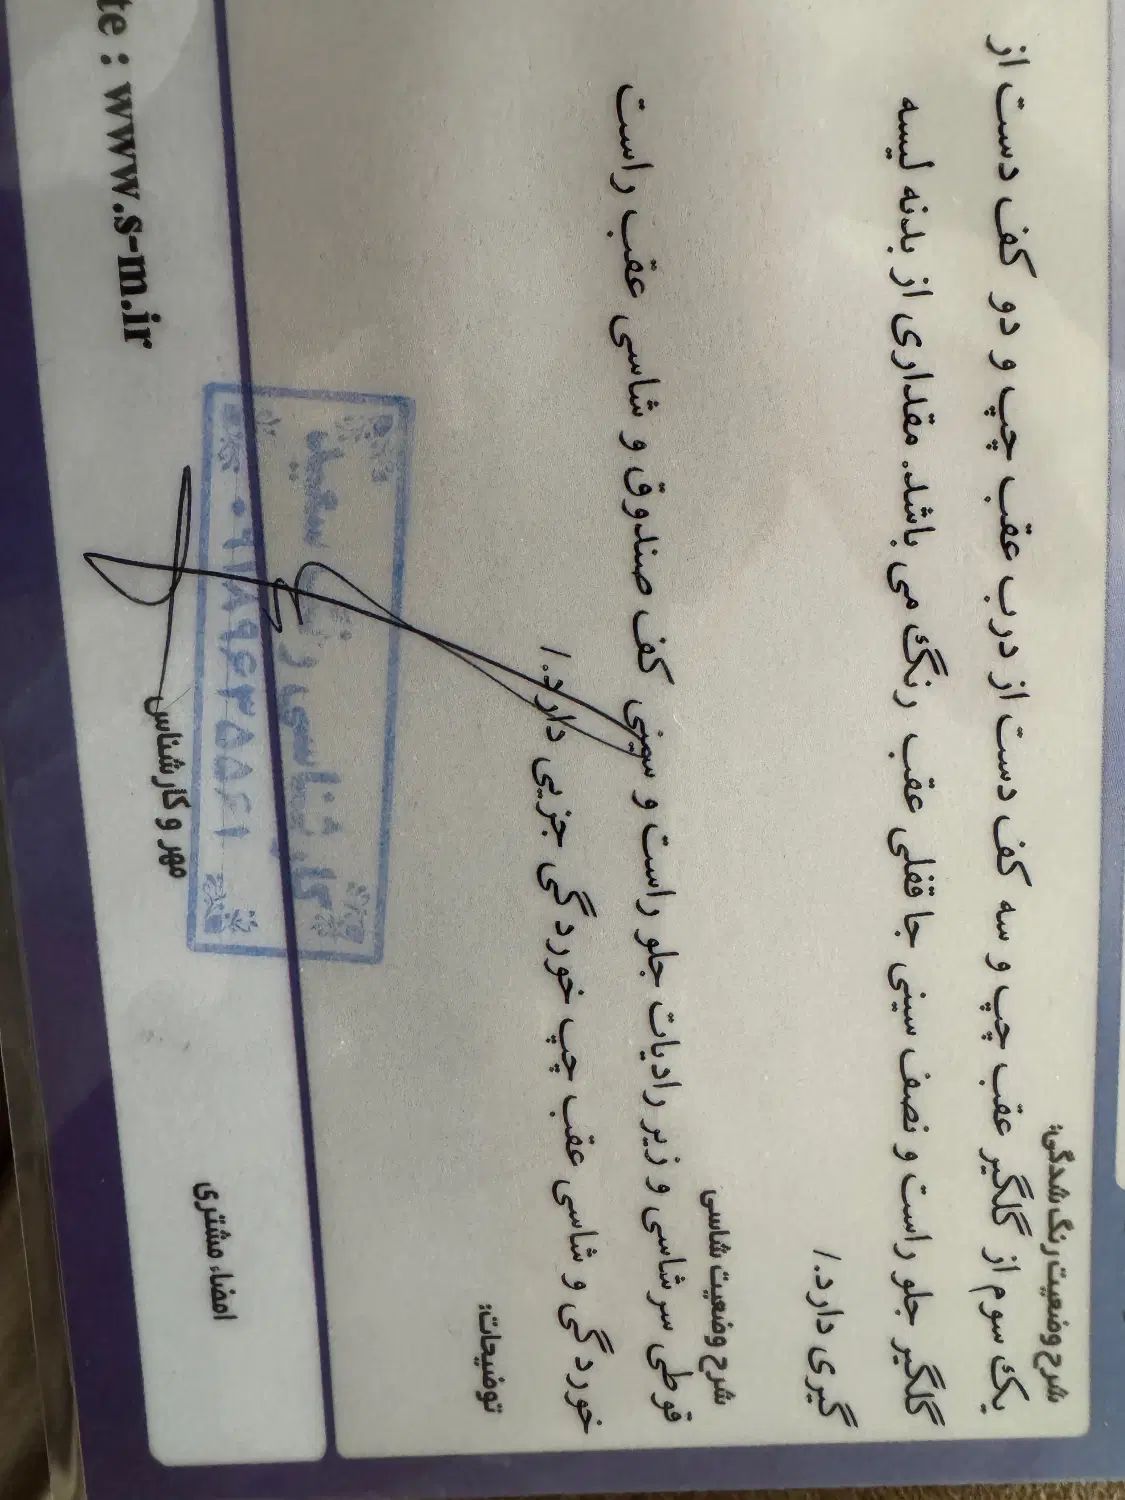 شرح وضعیت رنگ شدگی:
یک سوم از گلگیر عقب چپ و سه کف دست از درب عقب چپ و دو کف دست از
گلگیر جلو راست و نصف سینی جا قفلی عقب رنگ می باشد. مقداری از بدنه لیسه
گیری دارد./
شرح وضعیت شاسی
قوطی سر شاسی و زیر رادیات جلو راست و سینی کف صندوق و شاسی عقب راست
خوردگی و شاسی عقب چپ خوردگی جزیی دارد./
توضیحات:
کارشناسی رنگ سعید
۰۹۱۸۹۶۳۵۵۶۱
امضاء مشتری
مهر و کارشناس
te : www.s-m.ir